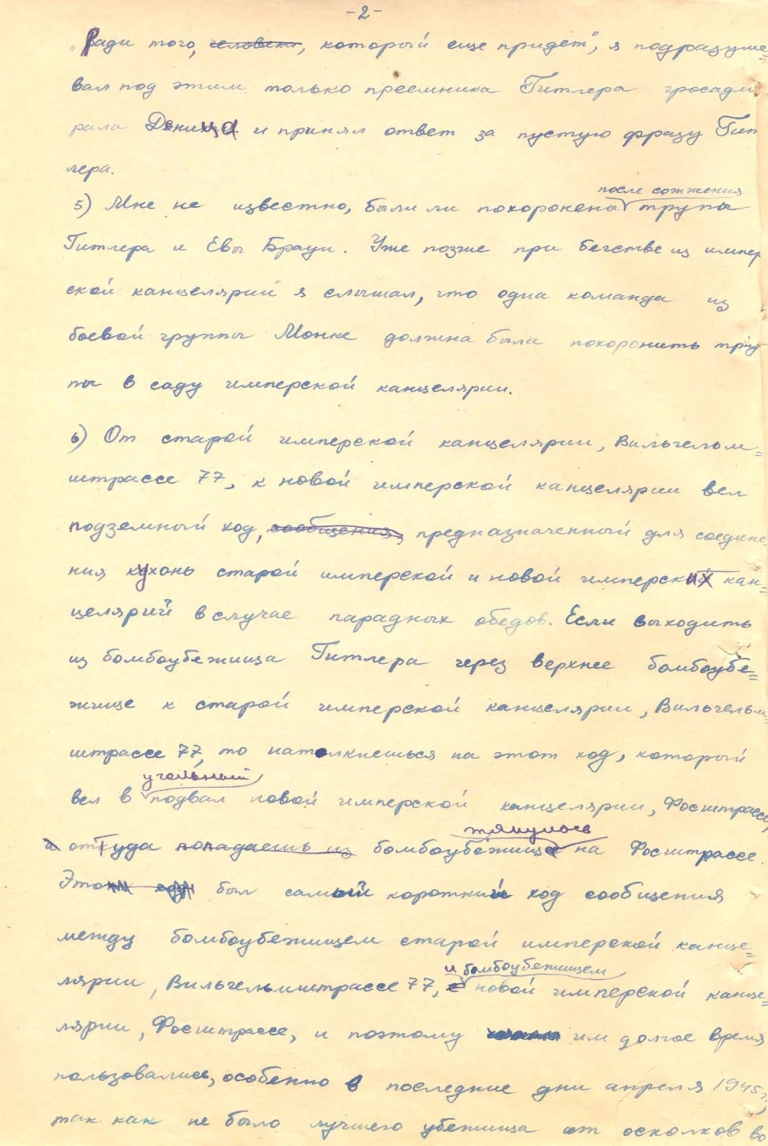 -2-
"Ради того, человека, который еще придет", я подразуме-
вал под этим только преемника Гитлера гросадми
рала Деница и принял ответ за пустую фразу Гит
лера.
после сожжения
5) Мне не известно, были ли похоронена трупы
Гитлера и Евы Браун. Уже позже при бегстве из импер
ской канцелярий я слышал, что одна команда из
боевой группы Монке должна была похоронить тру
пы в саду имперской канцелярии.
6) От старой имперской канцелярии, Вильгельм=
штрассе 77, к новой имперской канцелярии вел
подземный ход, сообщения, предназначенный для соедине
ния кухонь старой имперской и новой имперских кан=
целярий в случае парадных обедов. Если выходить
из бомбоубежища Гитлера через верхнее бомбоубе=
жище к старой имперской канцелярии, Вильгельм=
штрассе 77, то натолкнешься на этот ход, который
угольный
вел в подвал новой имперской канцелярии, Фосштрассе,
тянулось
и оттуда попадаешь из бомбоубежище на Фосштрассе.
Это был самый короткий ход сообщения
между бомбоубежищем старой имперской канце=
и бомбоубежищем
лярии, Вильгельмштрассе 77, с новой имперской канце=
лярии, Фосштрассе, и поэтому им долгое время
пользовались, особенно в последние дни апреля 1945г.,
так как не было лучшего убежища от осколков во